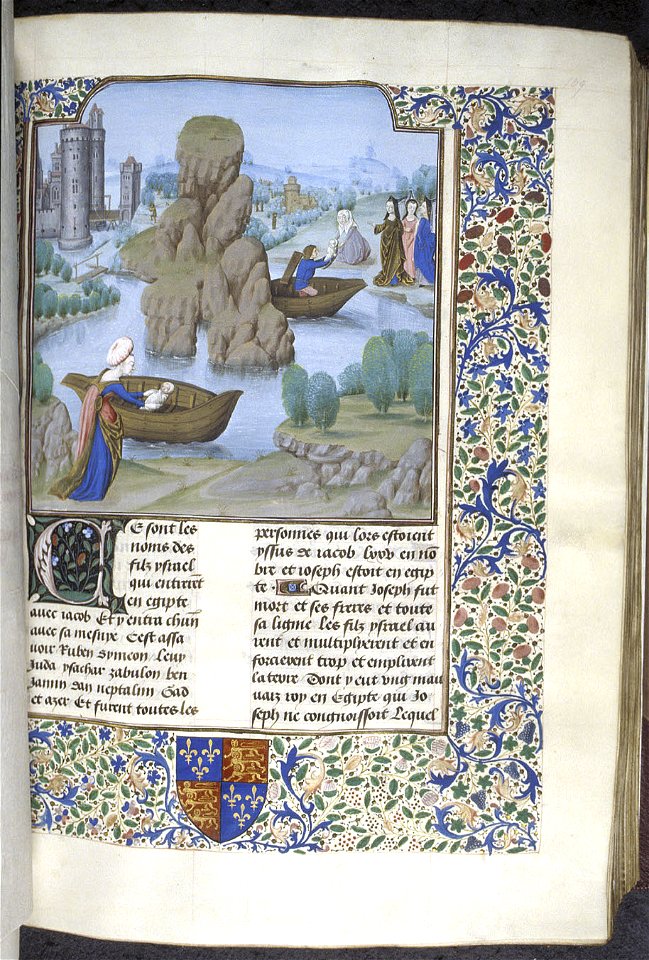 Ce sont les
noms des
filz ysrael
qui entrerēt
en egipte
auec iacob Et y entra chūn
auec sa mesnye Cest assa
uoir Ruben Symeon Leuy
Juda ysachar zabulon ben
Jamin dan neptalin Gad
et azer Et furent toutes les
personnes qui lors estoient
yssus de iacob lxvv en nō
bre et ioseph estoit en egip
te Quant Joseph fut
mort et ses freres et toute
sa ligne Les filz ysrael au
rent et multiplyerent et en
forcierent trop et emplirent
la terre Dont y eut vng mau
uaiz roy en Egipte qui Jo
seph ne congnoissoit Lequel